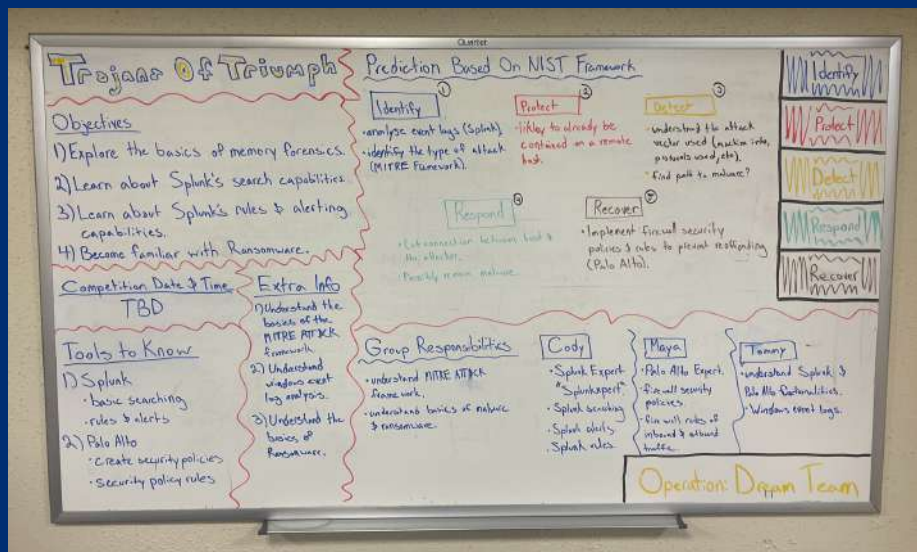 Quartet
Trojans Of Triumph
Objectives
1) Explore the basics of memory forensics.
2) Learn about Splunk's search capabilities.
3) Learn about Splunk's rules & alerting
capabilities.
4) Become familiar with Ransomware.
Competition Date & Time
TBD
Tools to Know
1) Splunk
• basic searching
• rules & alerts
2) Palo Alto
• create security policies
• security policy rules
Extra Info
1) Understand the
basics of the
MITRE ATT&CK
framework.
2) Understand
windows event
log analysis.
3) Understand the
basics of
Ransomware.
Prediction Based On NIST Framework
1
Identify
• analyse event logs (Splunk).
• identify the type of attack
(MITRE Framework).
2
Protect
• likley to already be
contained on a remote
host.
3
Detect
• understand the attack
vector used (machine info,
protocols used, etc).
• find path to malware?
4
Respond
• Cut connection between host &
the attacker.
• Possibly remove malware.
5
Recover
• Implement firewall security
policies & rules to prevent reoffending
(Palo Alto).
Identify
Protect
Detect
Respond
Recover
Group Responsibilities
• understand MITRE ATT&CK
framework.
• understand basics of malware
& ransomware.
Cody
• Splunk Expert
"Splunkxpert".
• Splunk searching
• Splunk alerts
• Splunk rules
Maya
• Palo Alto Expert.
• firewall security
policies
• firewall rules of
inbound & outbound
traffic.
Tommy
• understand Splunk &
Palo Alto functionalities.
• Windows event logs.
Operation: Dream Team